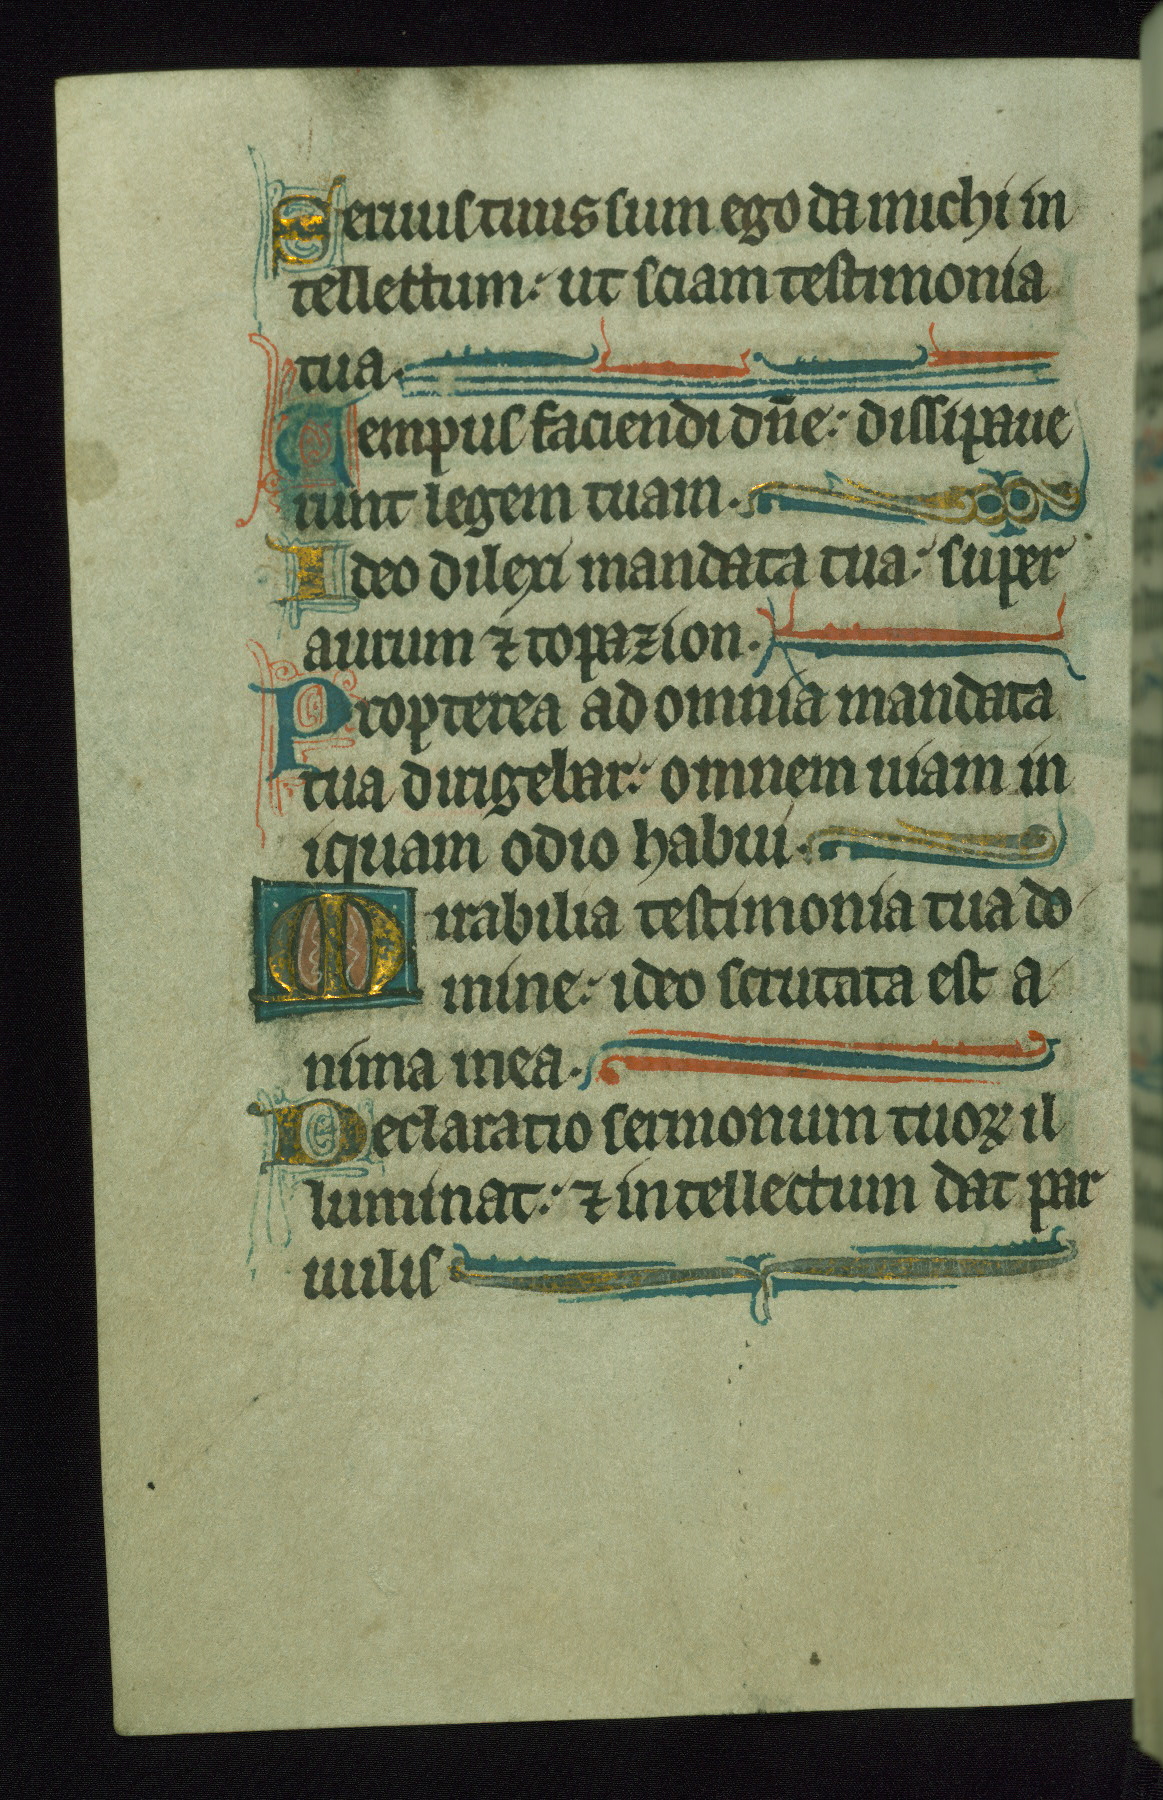 Seruus tuus sum ego da michi in
tellectum: ut sciam testimonia
tua.
Tempus faciendi dn̄e: dissipaue
runt legem tuam.
Ideo dilexi mandata tua: super
aurum ⁊ topazion.
Propterea ad omnia mandata
tua dirigebar: omnem uiam in
iquam odio habui.
Mirabilia testimonia tua do
mine: ideo scrutata est a
nima mea.
Declaratio sermonum tuoꝝ il
luminat: ⁊ intellectum dat par
uulis